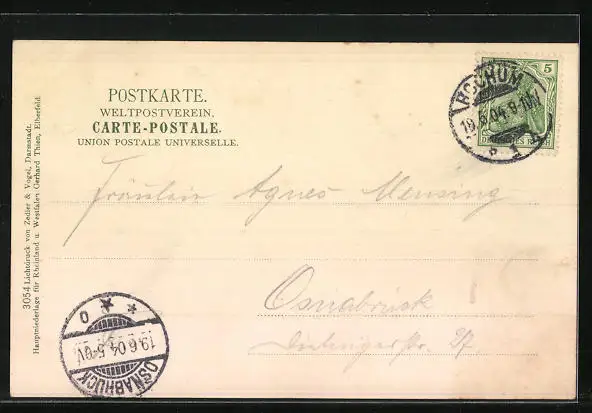 POSTKARTE.
WELTPOSTVEREIN.
CARTE-POSTALE.
UNION POSTALE UNIVERSELLE.
5
DEUTSCHES REICH
BOCHUM
19.6.04.9-10V
Fräulein Agnes Mensing
Osnabrück
27
3054 Lichtdruck von Zedler & Vogel, Darmstadt.
Hauptniederlage für Rheinland u. Westfalen Gerhard Thien, Elberfeld
OSNABRÜCK
19.6.04.5-6V.